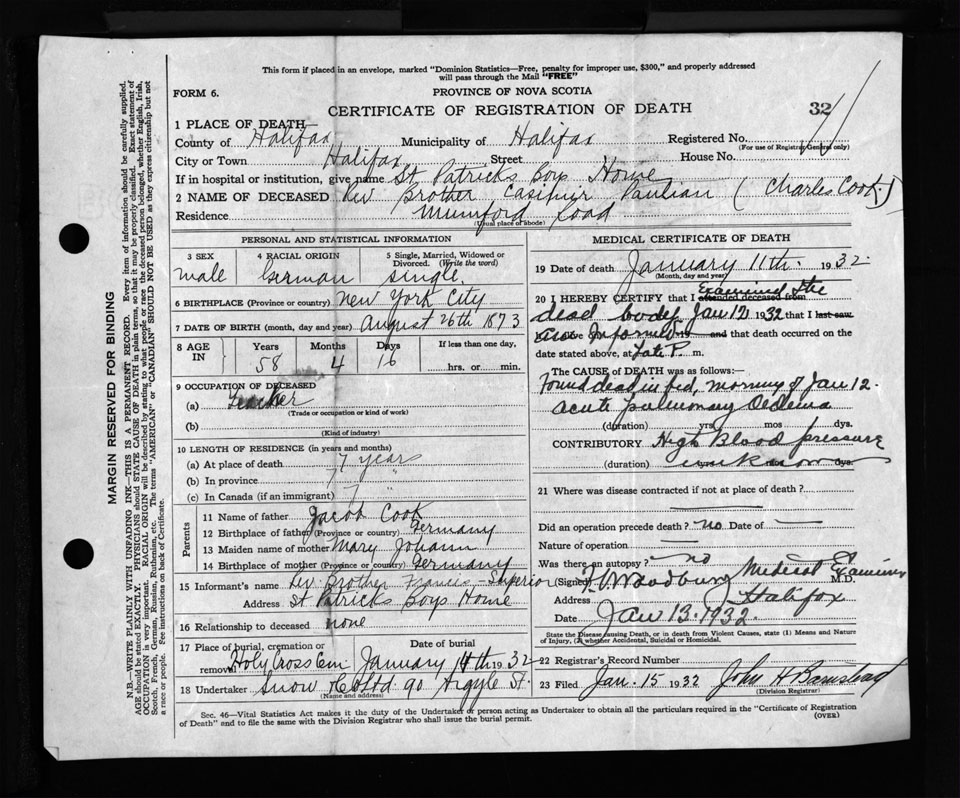 This form if placed in an envelope, marked "Dominion Statistics—Free, penalty for improper use, $300," and properly addressed
will pass through the Mail "FREE"
FORM 6.
PROVINCE OF NOVA SCOTIA
CERTIFICATE OF REGISTRATION OF DEATH
32
1 PLACE OF DEATH
County of Halifax Municipality of Halifax Registered No.
(For use of Registrar General only)
City or Town Halifax Street House No.
If in hospital or institution, give name St Patricks Boys Home
2 NAME OF DECEASED Rev Brother Casimir Paulian (Charles Cook)
Residence Mumford Road
(Usual place of abode)
PERSONAL AND STATISTICAL INFORMATION
3 SEX 4 RACIAL ORIGIN 5 Single, Married, Widowed or
Divorced. (Write the word)
male German single
6 BIRTHPLACE (Province or country) New York City
7 DATE OF BIRTH (month, day and year) August 26th 1873
8 AGE IN Years Months Days If less than one day,
58 4 16 hrs. or min.
9 OCCUPATION OF DECEASED
(a) Teacher
(Trade or occupation or kind of work)
(b)
(Kind of industry)
10 LENGTH OF RESIDENCE (in years and months)
(a) At place of death 7 years
(b) In province 7 "
(c) In Canada (if an immigrant) 7
Parents
11 Name of father Jacob Cook
12 Birthplace of father (Province or country) Germany
13 Maiden name of mother Mary Johann
14 Birthplace of mother (Province or country) Germany
15 Informant's name Rev. Brother Francis - Superior
Address St Patricks Boys Home
16 Relationship to deceased none
17 Place of burial, cremation or Date of burial
removal Holy Cross Cem January 14th 1932
18 Undertaker Snow & Co Ltd 90 Argyle St.
(Name and address)
MEDICAL CERTIFICATE OF DEATH
19 Date of death January 11th. 1932.
(Month, day and year)
20 I HEREBY CERTIFY that I attended deceased from Examined the
dead body Jan 12 1932 that I last saw
Informed and that death occurred on the
date stated above, at Late P. m.
The CAUSE of DEATH was as follows:—
Found dead in bed, morning of Jan 12.
acute pulmonary Oedema
(duration) yrs. mos. dys.
CONTRIBUTORY High Blood pressure
(duration) unknown dys.
21 Where was disease contracted if not at place of death?
Did an operation precede death? no Date of —
Nature of operation —
Was there an autopsy? no
(Signed) Woodbury Medical Examiner M.D.
Address Halifax
Date Jan 13. 1932.
State the Disease causing Death, or in death from Violent Causes, state (1) Means and Nature
of Injury, (2) whether Accidental, Suicidal or Homicidal.
22 Registrar's Record Number
23 Filed Jan. 15 1932 John H Barnstead
(Division Registrar)
Sec. 46—Vital Statistics Act makes it the duty of the Undertaker or person acting as Undertaker to obtain all the particulars required in the "Certificate of Registration
of Death" and to file the same with the Division Registrar who shall issue the burial permit.
(OVER)
MARGIN RESERVED FOR BINDING
N.B.—WRITE PLAINLY WITH UNFADING INK—THIS IS A PERMANENT RECORD. Every item of information should be carefully supplied.
AGE should be stated EXACTLY. PHYSICIANS should STATE CAUSE OF DEATH in plain terms, so that it may be properly classified. Exact statement of
OCCUPATION is very important. RACIAL ORIGIN will be described by stating to what people or race the deceased person belonged, whether English, Irish,
Scotch, French, German, Russian, Ruthenian, etc. The terms "AMERICAN" or "CANADIAN" SHOULD NOT BE USED as they express citizenship but not
a race or people. Fee instructions on back of Certificate.